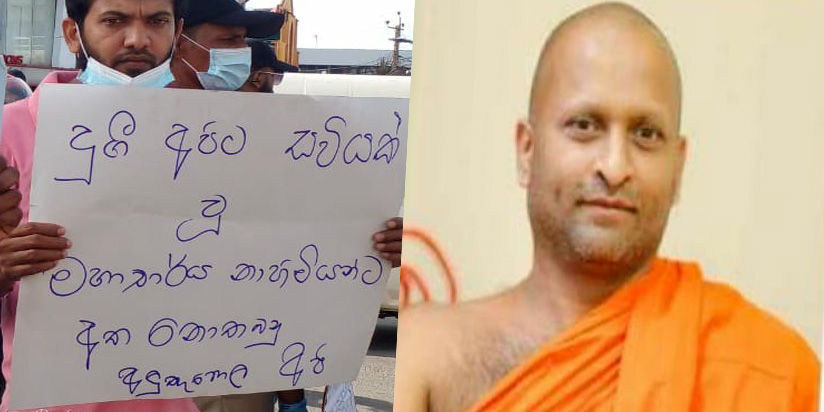 දුගී අපිට සවියක්
වූ
මහාචාර්ය නාහිමියන්ට
අත නොතබනු
අලුත්තොල අපි